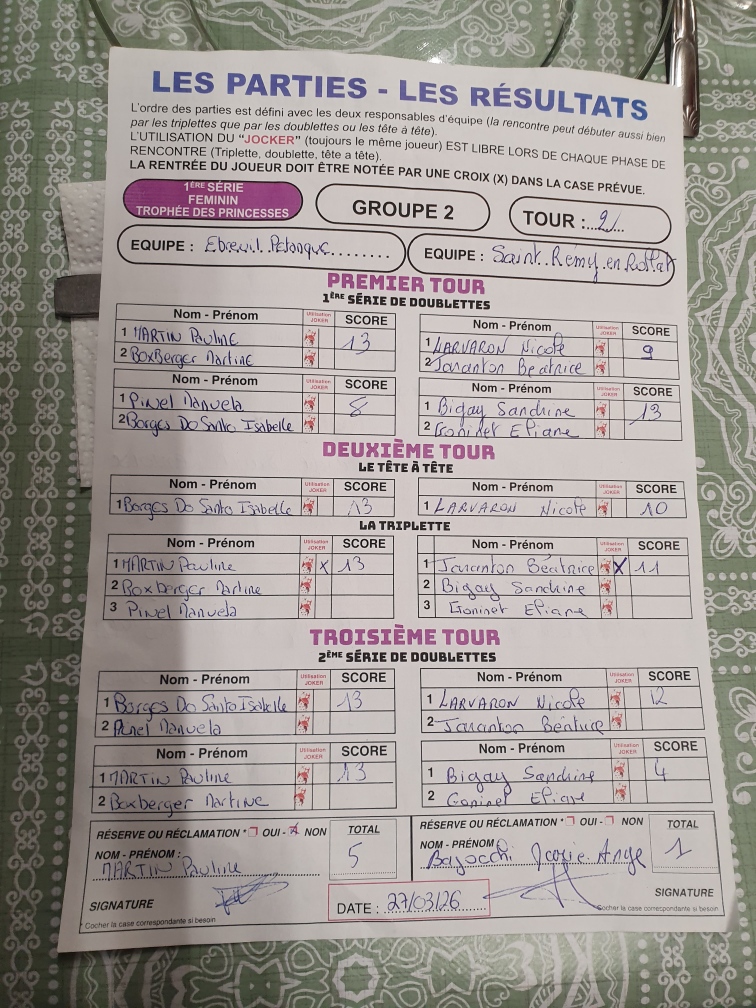 LES PARTIES - LES RÉSULTATS
L'ordre des parties est défini avec les deux responsables d'équipe (la rencontre peut débuter aussi bien
par les triplettes que par les doublettes ou les tête à tête).
L'UTILISATION DU "JOCKER" (toujours le même joueur) EST LIBRE LORS DE CHAQUE PHASE DE
RENCONTRE (Triplette, doublette, tête a tête).
LA RENTRÉE DU JOUEUR DOIT ÊTRE NOTÉE PAR UNE CROIX (X) DANS LA CASE PRÉVUE.
1ÈRE SÉRIE
FEMININ
TROPHÉE DES PRINCESSES
GROUPE 2
TOUR : 2
EQUIPE : Ebreuil Petanque
EQUIPE : Saint Rémy en Rollat
PREMIER TOUR
1ÈRE SÉRIE DE DOUBLETTES
Nom - Prénom Utilisation JOKER SCORE
1 MARTIN Pauline 13
2 BoxBerger Martine
Nom - Prénom Utilisation JOKER SCORE
1 LARVARON Nicole 9
2 Jaranton Béatrice
Nom - Prénom Utilisation JOKER SCORE
1 Pinel Manuela 8
2 Borges Do Santo Isabelle
Nom - Prénom Utilisation JOKER SCORE
1 Bigay Sandrine 13
2 Goninet Eliane
DEUXIÈME TOUR
LE TÊTE À TÊTE
Nom - Prénom Utilisation JOKER SCORE
1 Borges Do Santo Isabelle 13
Nom - Prénom Utilisation JOKER SCORE
1 LARVARON Nicole 10
LA TRIPLETTE
Nom - Prénom Utilisation JOKER SCORE
1 MARTIN Pauline X 13
2 Boxberger Martine
3 Pinel Manuela
Nom - Prénom Utilisation JOKER SCORE
1 Jaranton Béatrice X 11
2 Bigay Sandrine
3 Goninet Eliane
TROISIÈME TOUR
2ÈME SÉRIE DE DOUBLETTES
Nom - Prénom Utilisation JOKER SCORE
1 Borges Do Santo Isabelle 13
2 Pinel Manuela
Nom - Prénom Utilisation JOKER SCORE
1 LARVARON Nicole 12
2 Jaranton Béatrice
Nom - Prénom Utilisation JOKER SCORE
1 MARTIN Pauline 13
2 Boxberger Martine
Nom - Prénom Utilisation JOKER SCORE
1 Bigay Sandrine 4
2 Goninet Eliane
RÉSERVE OU RÉCLAMATION * OUI - X NON
TOTAL
5
NOM - PRÉNOM :
MARTIN Pauline
SIGNATURE
* Cocher la case correspondante si besoin
RÉSERVE OU RÉCLAMATION * OUI - NON
TOTAL
1
NOM - PRÉNOM
Bajocchi Ange
SIGNATURE
Cocher la case correspondante si besoin
DATE : 27/03/26